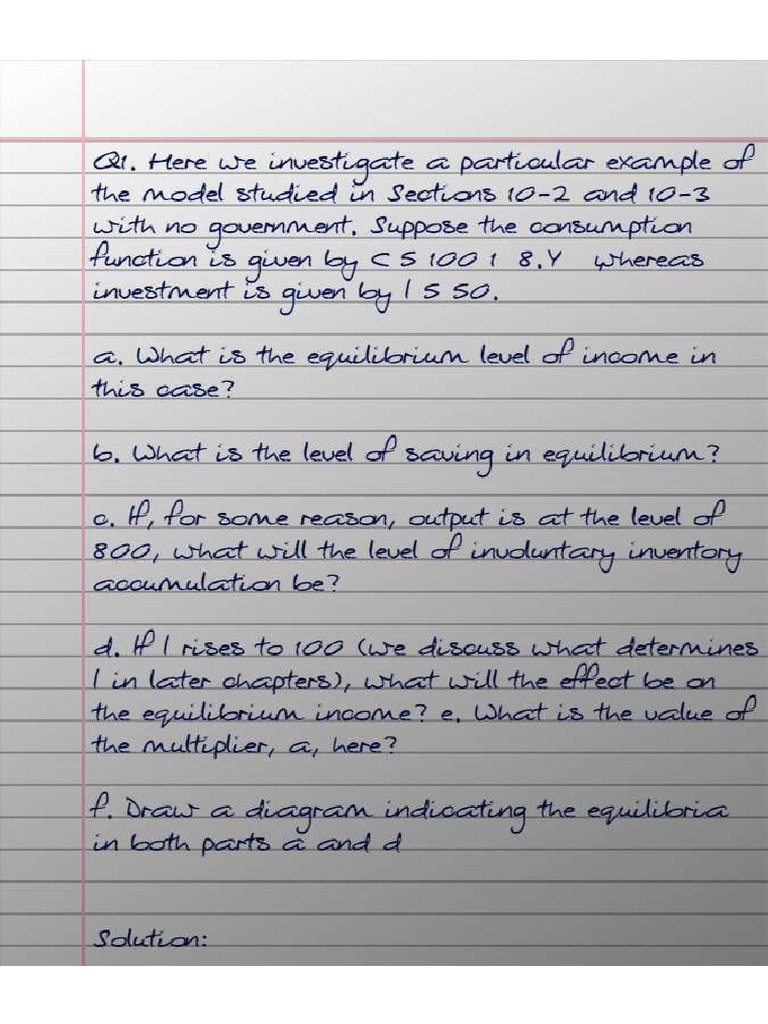 Q1. Here we investigate a particular example of
the model studied in Sections 10-2 and 10-3
with no government. Suppose the consumption
function is given by C 5 100 1 8.Y whereas
investment is given by I 5 50.
a. What is the equilibrium level of income in
this case?
b. What is the level of saving in equilibrium?
c. If, for some reason, output is at the level of
800, what will the level of involuntary inventory
accumulation be?
d. If I rises to 100 (we discuss what determines
I in later chapters), what will the effect be on
the equilibrium income? e. What is the value of
the multiplier, a, here?
f. Draw a diagram indicating the equilibria
in both parts a and d
Solution: